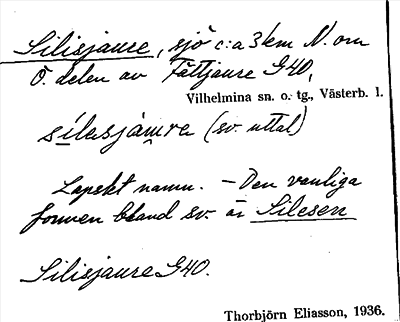 Silisjaure, sjö c:a 3 km N. om
Ö. delen av Fättjaure G40,
Vilhelmina sn. o. tg., Västerb. l.
sílasjàuvra (sv. uttal)
Lapskt namn. – Den vanliga
formen bland sv. är Silesen
Silisjaure G40.
Thorbjörn Eliasson, 1936.